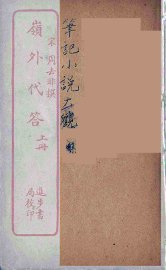 筆記小說大觀
宋 周去非撰
嶺外代答 上冊
進步書
局校印